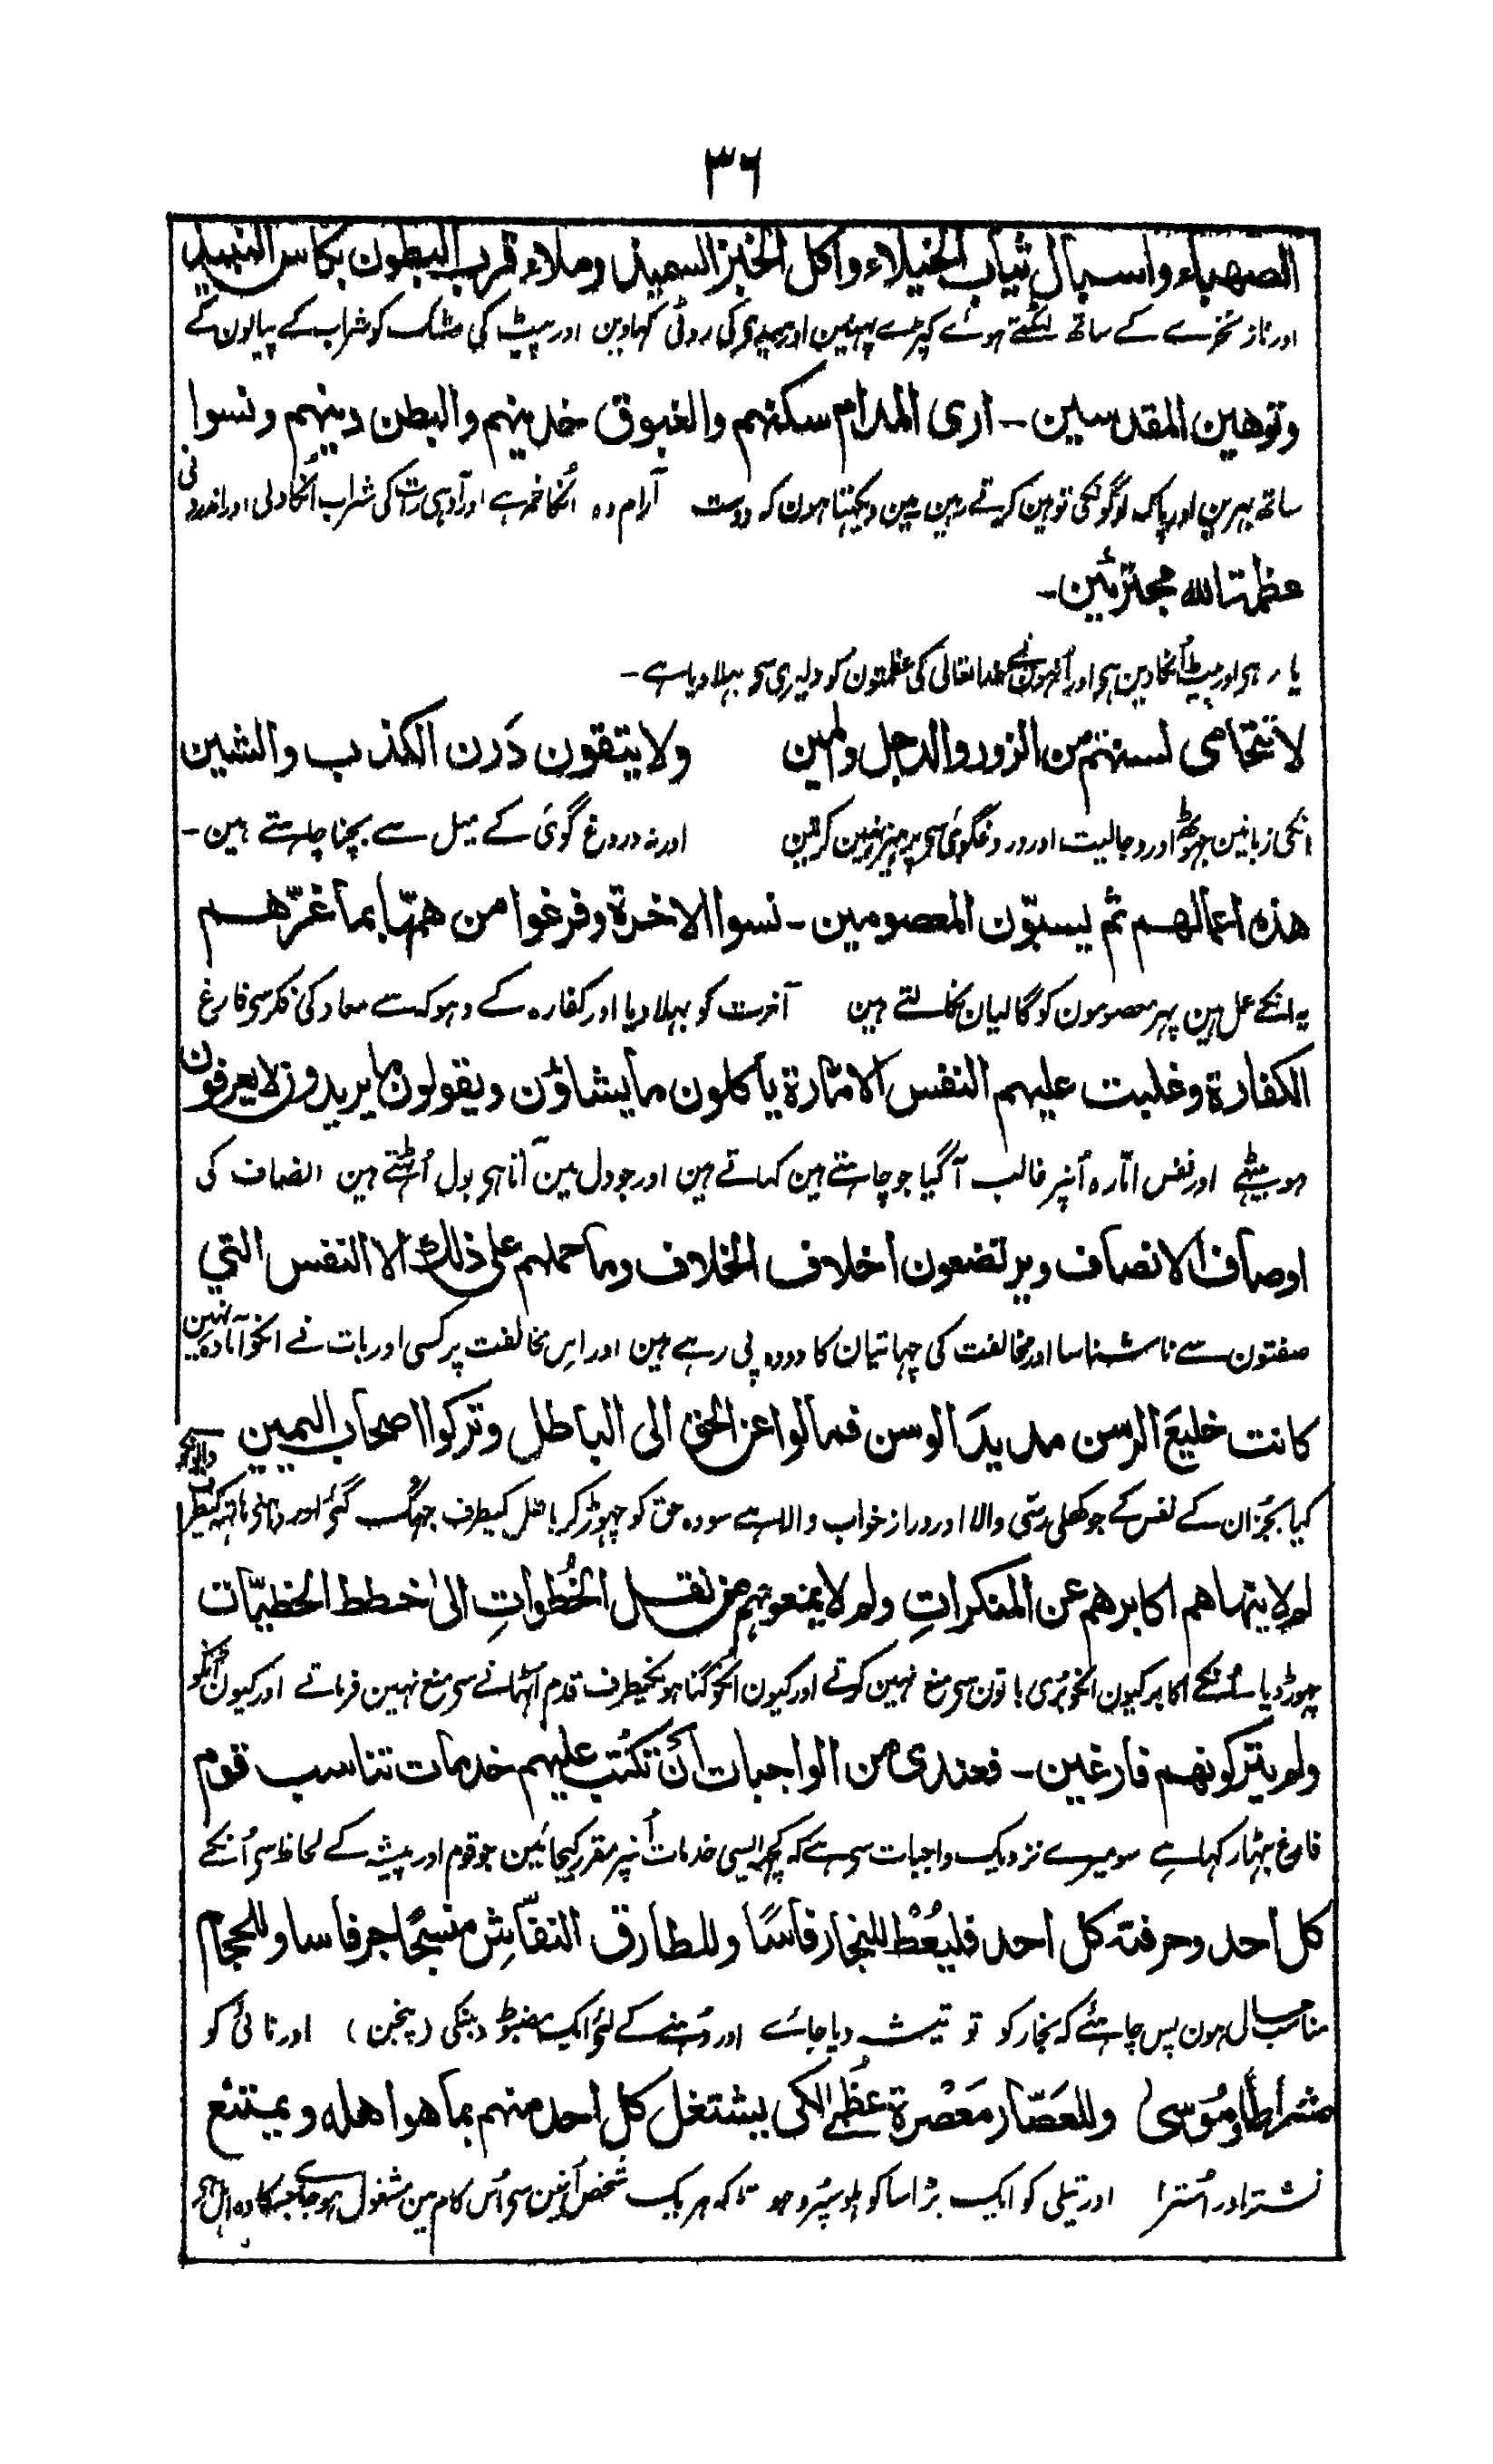 ٣٦
الصهباء واسبال ثياب الخيلاء واكل الخبز السميذ وملاء قرب البطون بكاس النبيذ
اور ناز نخرے کے ساتھ لٹکتے ہوئے کپڑے پہنیں اور میدہ کی روٹی کہاوین اور پیٹ کی مشک کو شراب کے پیالون کے
وتوهين المقدسين - ارى المدام سكنهم والغبوق خدينهم والبطن دينهم ونسوا
ساتھ بہرین اور پاک لوگونکی توہین کرتے رہین مین دیکہتا ہون کہ دوست آرام دہ انکا خمر ہے اور آدہی رات کی شراب اُنکا دلی اور اندرونی
عظمت الله مجترئين -
یار ہی اور پیٹ اُنکا دین ہی اور اُنہون نے خدا تعالیٰ کی عظمتون کو دلیری سی بہلا دیا ہے -
لا تتحامى لسنهم من الزور والدجل والمين ولا يتقون دَرن الكذب والشين
انکی زبانین جہوٹھ اور دجالیت اور دروغگوئی سی پرہیز نہین کرتین اور نہ دروغ گوئی کے میل سے بچنا چاہتے ہین -
هذه اعمالهم ثم يسبّون المعصومين - نسوا الاخرة وفرغوا من همّها بما غرّهم
یہ انکے عمل ہین پہر معصومون کو گالیان نکالتے ہین آخرت کو بہلا دیا اور کفارہ کے دہوکہ سے معاد کی فکر سی فارغ
الكفارة وغلبت عليهم النفس الامّارة يأكلون ما يشاؤن ويقولون ما يريدون لا يعرفون
ہو بیٹہے اور نفس امّارہ اُنپر غالب آگیا جو چاہتے ہین کہاتے ہین اور جو دل مین آتا ہی بول اُٹہتے ہین انصاف کی
اوصاف الانصاف ويرتضعون اخلاف الخلاف وما حملهم على ذلك الا النفس التي
صفتون سے ناشناسا اور مخالفت کی چہاتیان کا دودہ پی رہے ہین اور اس مخالفت پر کسی اور بات نے انکو آمادہ نہین
كانت خليعَ الرسن مديدَ الوسن فمالوا عن الحق الى الباطل وتركوا اصحاب اليمين
کیا بجز اُن کے نفس کے جو کھلی رسّی والا اور دراز خواب والا ہے سو وہ حق کو چہوڑ کر باطل کیطرف جہک گئے اور داہنی ہاتھ کیطرف
لم لا ينهاهم اكابرهم عن المنكراتِ ولم لا يمنعونهم من نقل الخُطواتِ الى خطط الخطيّات
چہوڑ دیا اُنکے اکابر کیون انکو بُری باتون سی منع نہین کرتے اور کیون انکو گناہونکیطرف قدم اُٹہانے سی منع نہین فرماتے اور کیون انکو
ولم يتركونهم فارغين - فعندي من الواجبات اَن تكتب عليهم خدمات تناسب قوم
فارغ بٹہار کہا ہے سو میرے نزدیک واجبات سی ہے کہ کچہہ ایسی خدمات اُنپر مقرر کیجائین جو قوم اور پیشہ کے لحاظ سی اُنکے
كل احد وحرفة كل احد فليُعْط للنجار فأسًا وللطارق النفّاش منسجًا جرفاسا وللحجام
مناسب حال ہون پس چاہئے کہ نجار کو تو تیشہ دیا جائے اور دُہنئے کے لئے ایک مضبوط دہنکی (پنجن) اور نائی کو
مشراطا ومُوسى وللعَصّار مَعْصرة عظمىٰ لكي يشتغل كل احد منهم بما هو اهله ويمتنع
نشتر اور اُسترا اور تیلی کو ایک بڑا سا کولہو سپرد ہو تاکہ ہر یک شخص اُنین سی اُس کام مین مشغول ہو جائے جسکا وہ اہل ہے